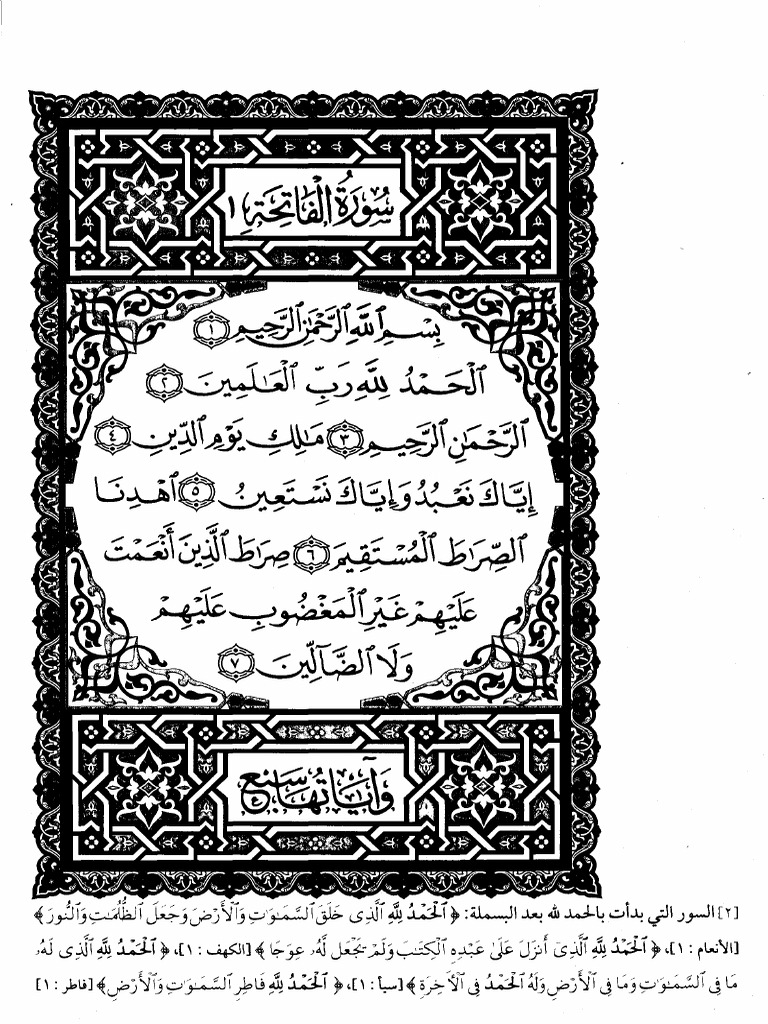 سُورَةُ الْفَاتِحَةِ ١
بِسْمِ ٱللَّهِ ٱلرَّحْمَٰنِ ٱلرَّحِيمِ ١
ٱلْحَمْدُ لِلَّهِ رَبِّ ٱلْعَٰلَمِينَ ٢
ٱلرَّحْمَٰنِ ٱلرَّحِيمِ ٣ مَٰلِكِ يَوْمِ ٱلدِّينِ ٤
إِيَّاكَ نَعْبُدُ وَإِيَّاكَ نَسْتَعِينُ ٥ ٱهْدِنَا
ٱلصِّرَٰطَ ٱلْمُسْتَقِيمَ ٦ صِرَٰطَ ٱلَّذِينَ أَنْعَمْتَ
عَلَيْهِمْ غَيْرِ ٱلْمَغْضُوبِ عَلَيْهِمْ
وَلَا ٱلضَّآلِّينَ ٧
وَآيَاتُهَا سَبْعٌ
[٢] السور التي بدأت بالحمد لله بعد البسملة: ﴿ ٱلْحَمْدُ لِلَّهِ ٱلَّذِى خَلَقَ ٱلسَّمَٰوَٰتِ وَٱلْأَرْضَ وَجَعَلَ ٱلظُّلُمَٰتِ وَٱلنُّورَ ﴾
[الأنعام : ١]، ﴿ ٱلْحَمْدُ لِلَّهِ ٱلَّذِىٓ أَنزَلَ عَلَىٰ عَبْدِهِ ٱلْكِتَٰبَ وَلَمْ يَجْعَل لَّهُۥ عِوَجَا ﴾ [الكهف : ١]، ﴿ ٱلْحَمْدُ لِلَّهِ ٱلَّذِى لَهُۥ
مَا فِى ٱلسَّمَٰوَٰتِ وَمَا فِى ٱلْأَرْضِ وَلَهُ ٱلْحَمْدُ فِى ٱلْأَخِرَةِ ﴾ [سبأ : ١]، ﴿ ٱلْحَمْدُ لِلَّهِ فَاطِرِ ٱلسَّمَٰوَٰتِ وَٱلْأَرْضِ ﴾ [فاطر : ١]